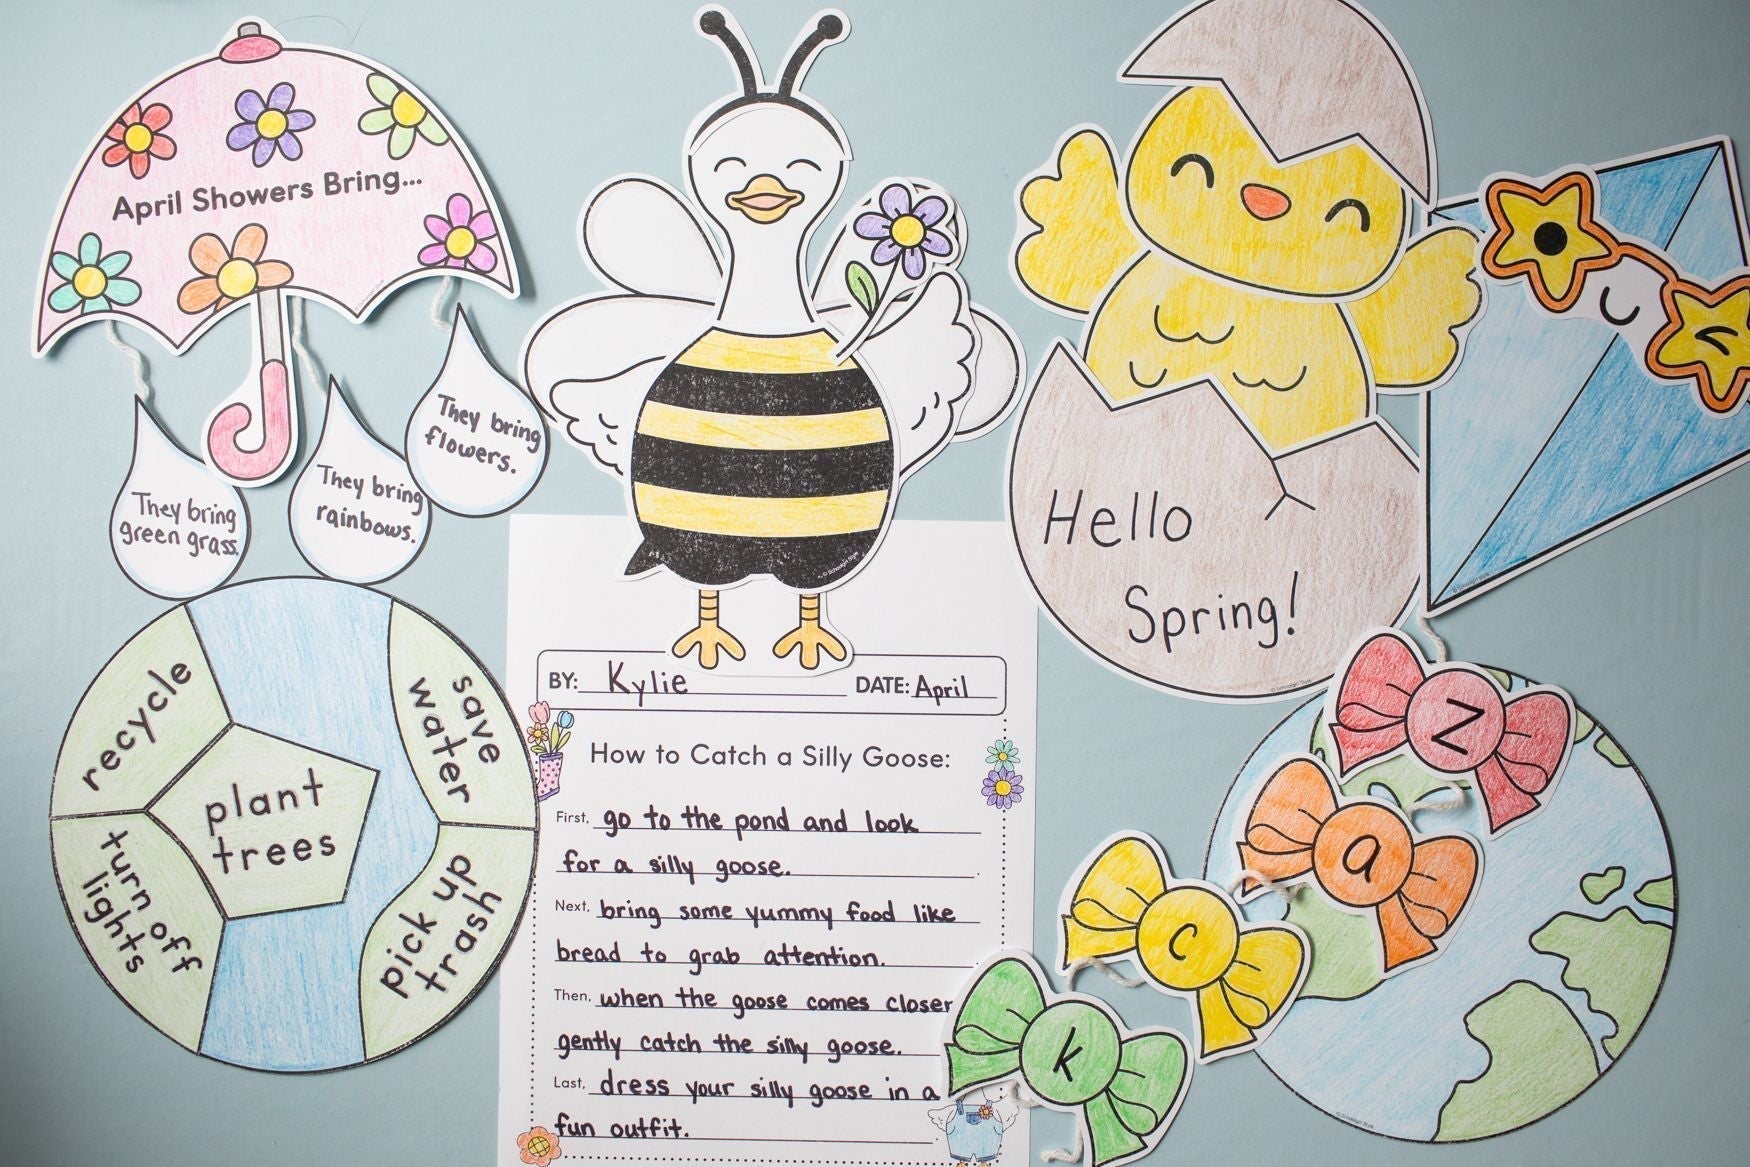 April Showers Bring...
They bring
green grass.
They bring
rainbows.
They bring
flowers.
© Schoolgirl Style
Hello
Spring!
© Schoolgirl Style
recycle
save
water
plant
trees
turn off
lights
pick up
trash
BY: Kylie DATE: April
How to Catch a Silly Goose:
First, go to the pond and look
for a silly goose.
Next, bring some yummy food like
bread to grab attention.
Then, when the goose comes closer
gently catch the silly goose.
Last, dress your silly goose in a
fun outfit.
z
a
c
k